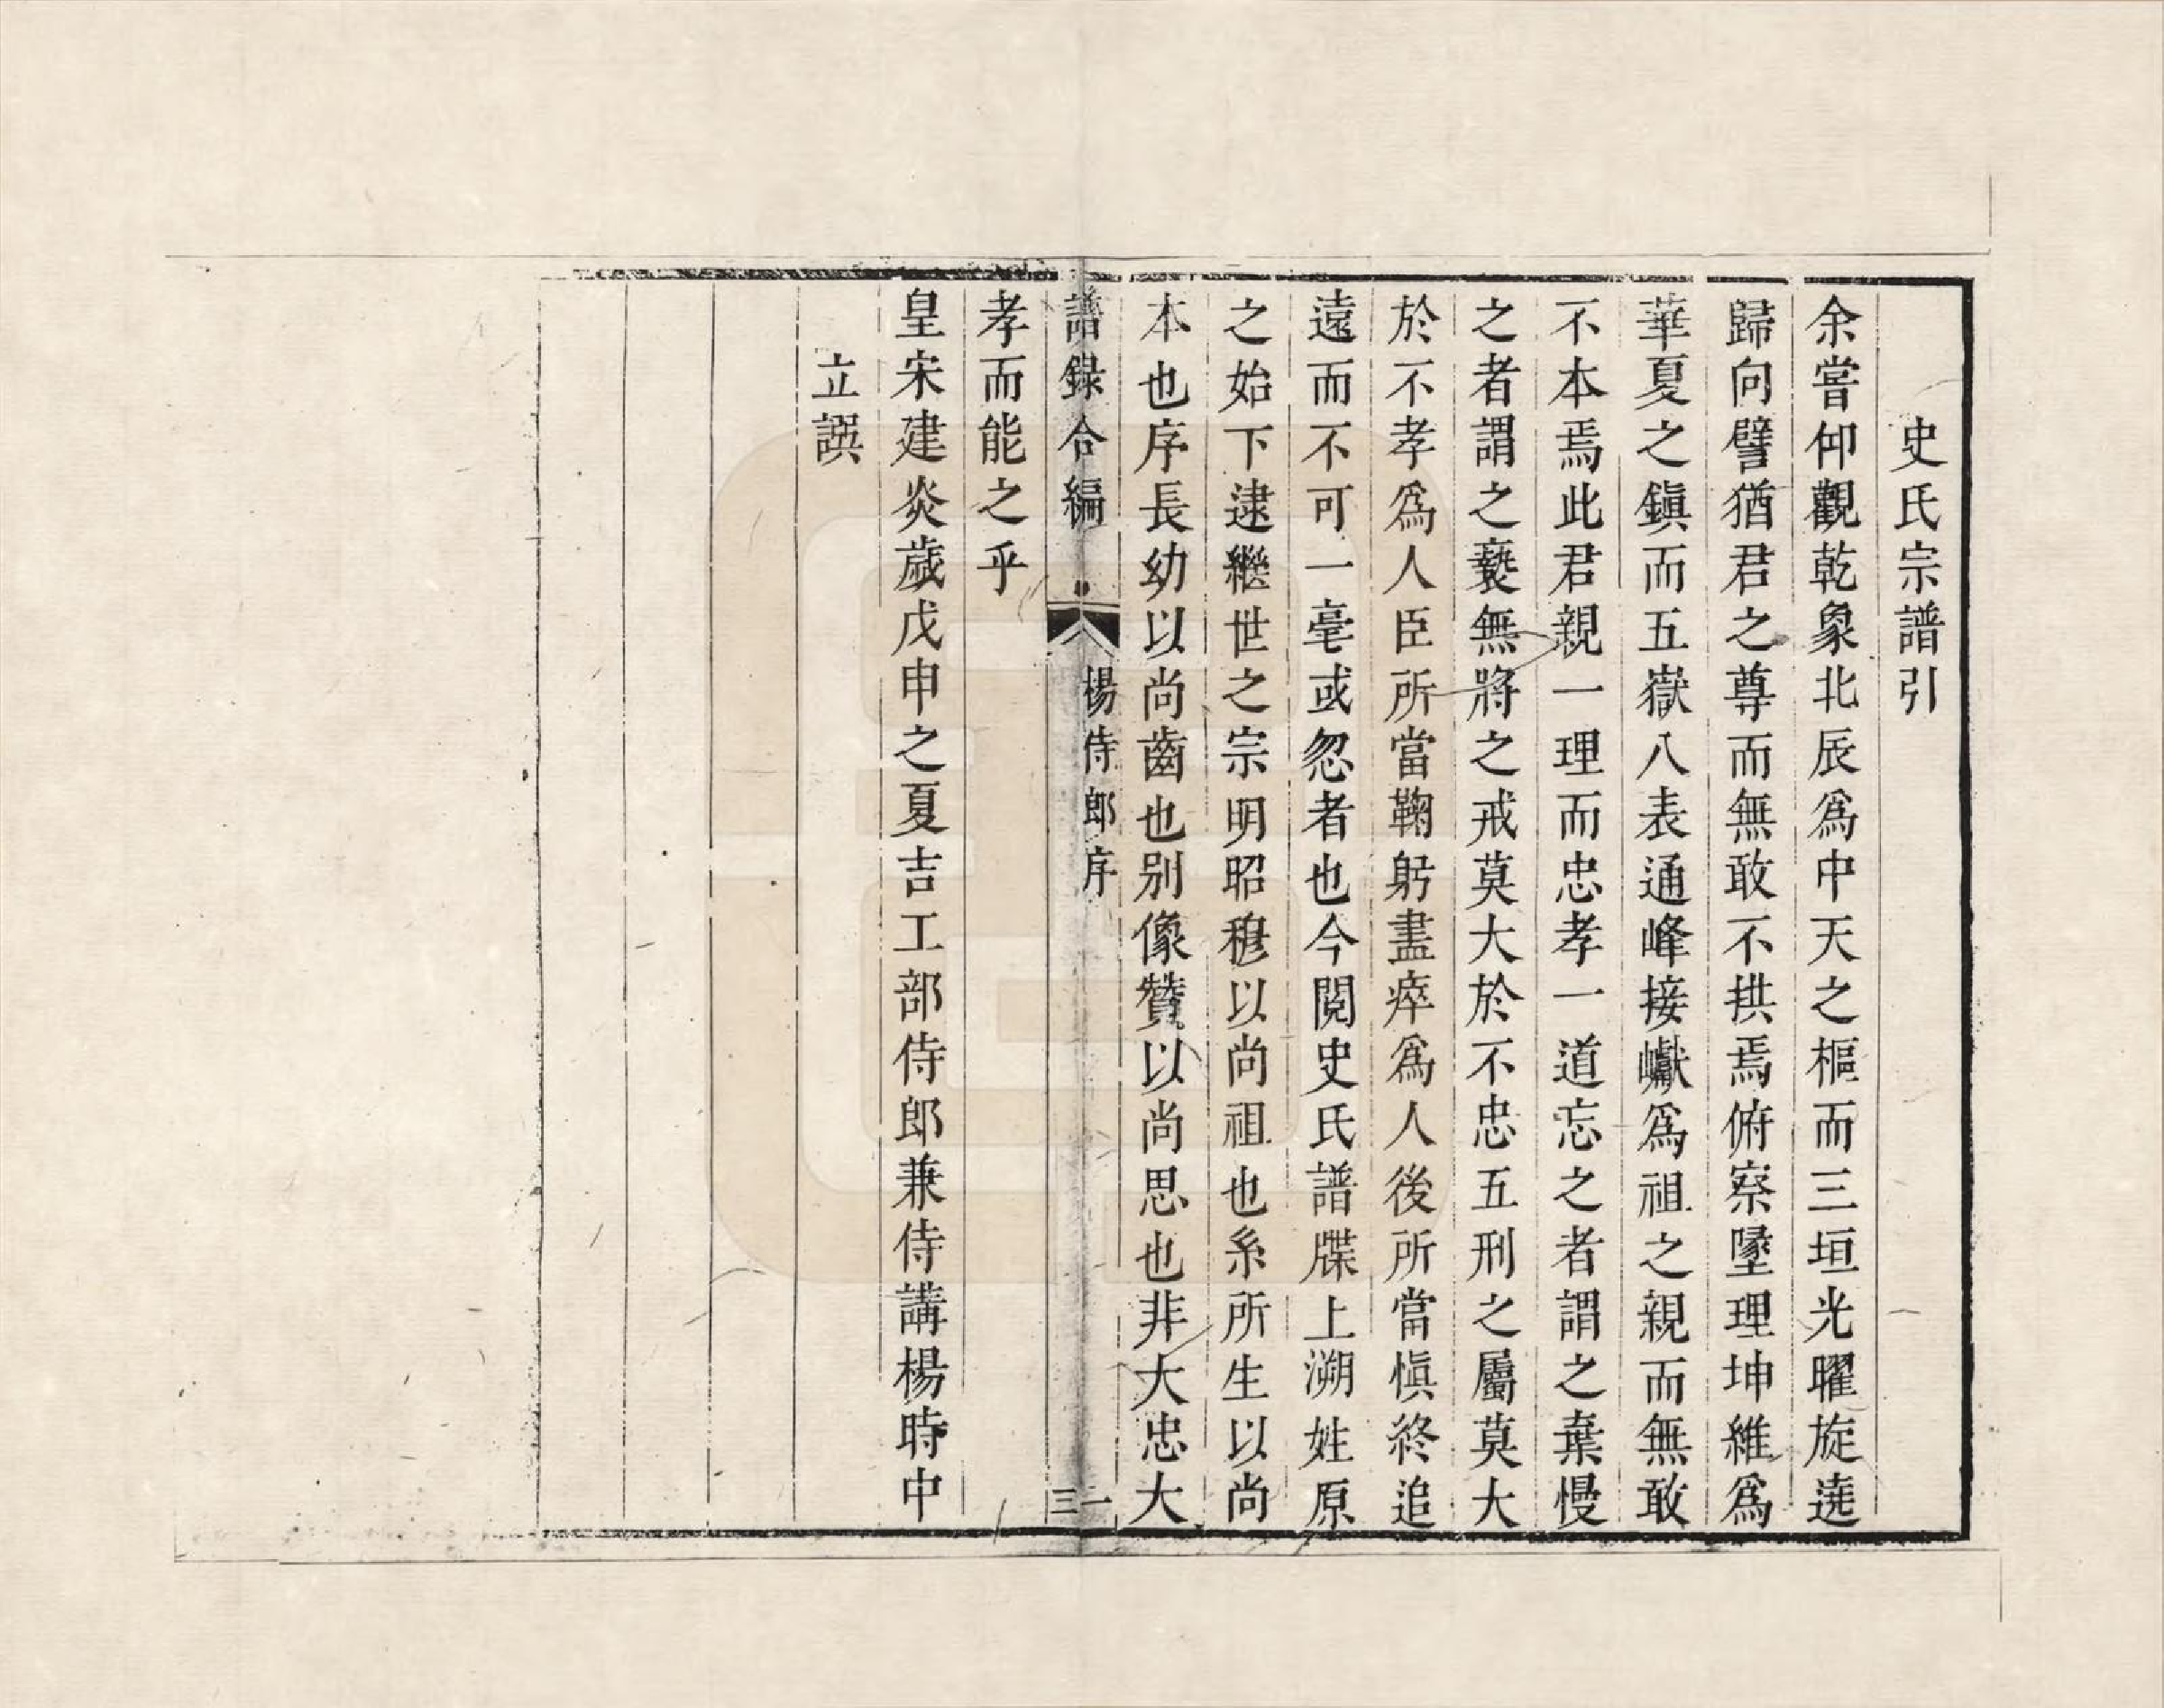 史氏宗譜引
余嘗仰觀乾象北辰爲中天之樞而三垣光曜旋遶
歸向譬猶君之尊而無敢不拱焉俯察墬理坤維爲
華夏之鎮而五嶽八表通峰接巘爲祖之親而無敢
不本焉此君親一理而忠孝一道忘之者謂之棄慢
之者謂之褻無將之戒莫大於不忠五刑之屬莫大
於不孝爲人臣所當鞠躬盡瘁爲人後所當愼終追
遠而不可一毫或忽者也今閱史氏譜牒上溯姓原
之始下逮繼世之宗明昭穆以尚祖也系所生以尚
本也序長幼以尚齒也别像贊以尚思也非大忠大
譜録合編
楊侍郎序
三一
孝而能之乎
皇宋建炎歲戊申之夏吉工部侍郎兼侍講楊時中
立譔